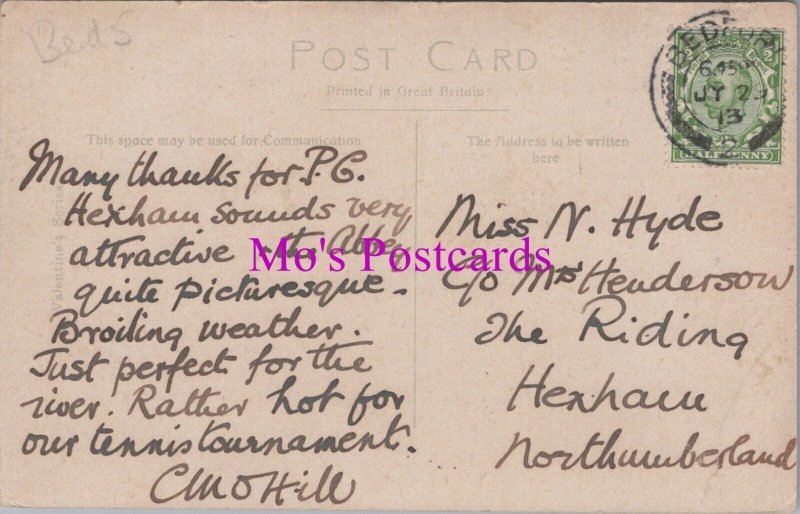 Beds
POST CARD
Printed in Great Britain
BEDFORD
6.45 PM
JY 2
13
HALFPENNY
This space may be used for Communication
The Address to be written
here
Valentine's Series
Many thanks for P.C.
Hexham sounds very
attractive - the Abbey
quite picturesque -
Broiling weather.
Just perfect for the
river. Rather hot for
our tennis tournament.
CMO Hill
Miss N. Hyde
C/o Mrs Henderson
The Riding
Hexham
Northumberland
Mo's Postcards